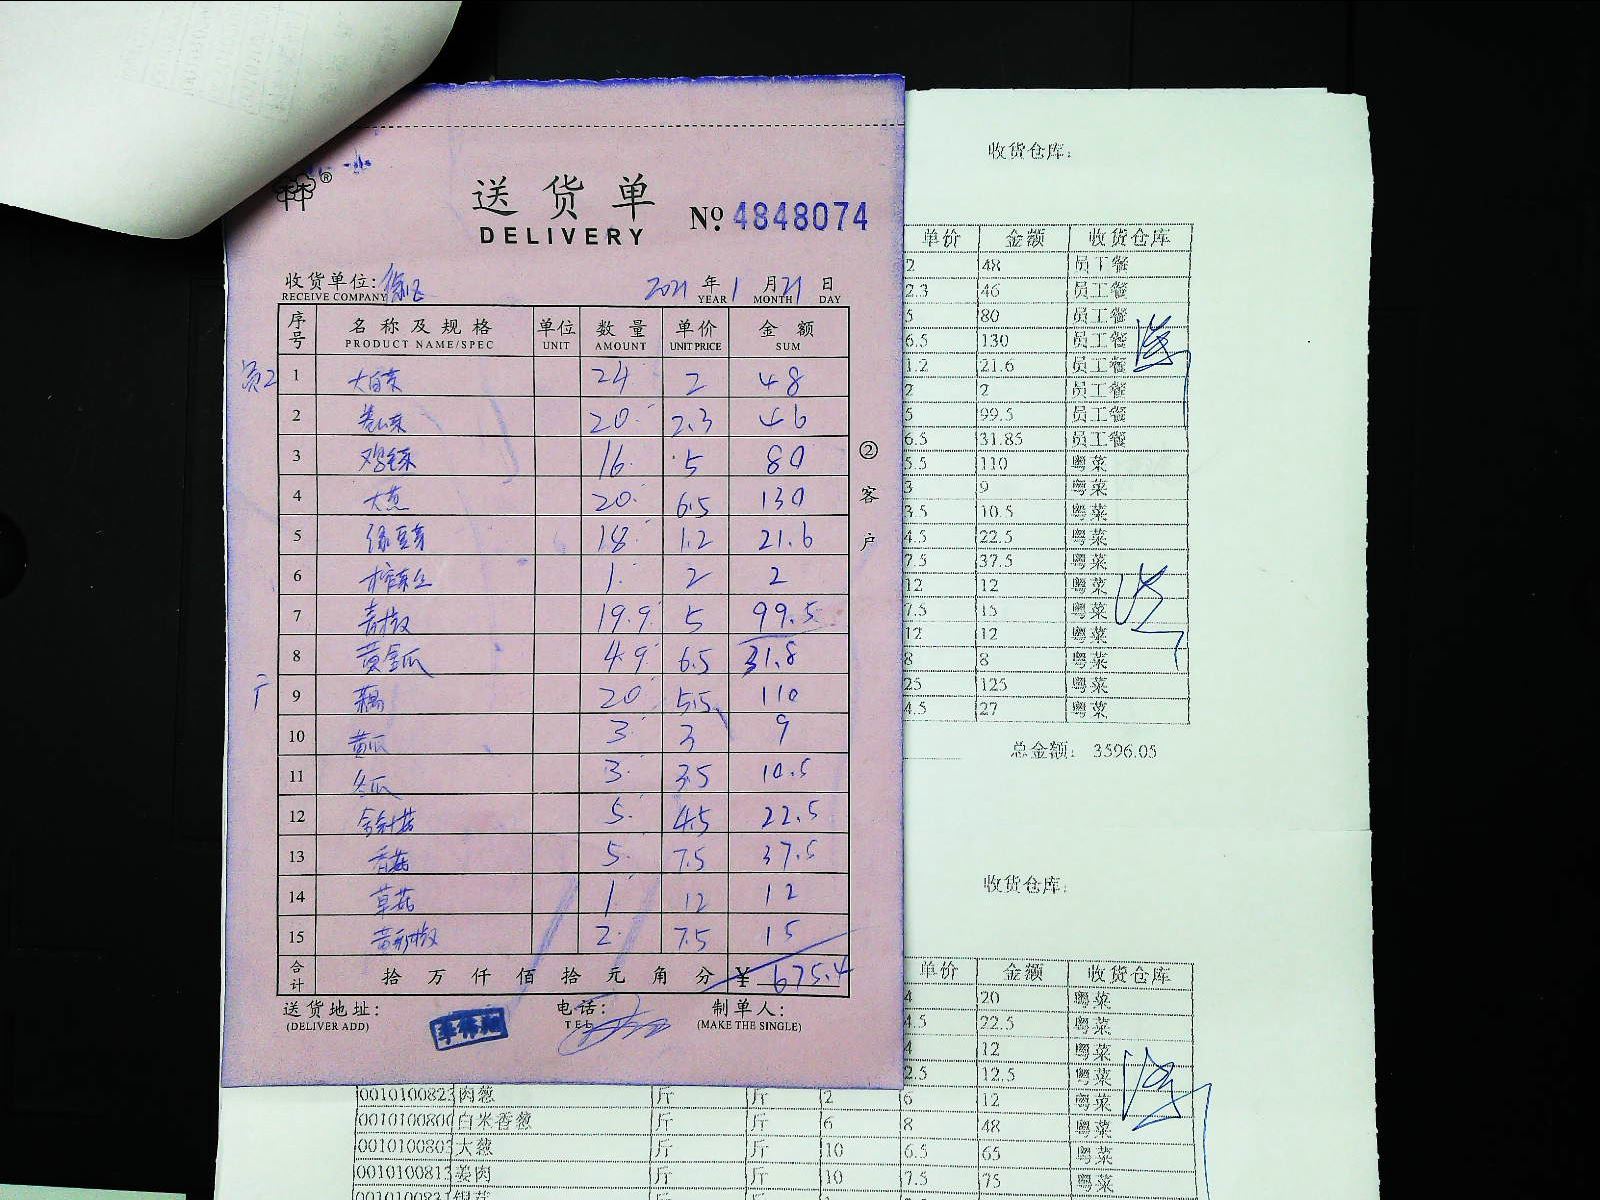 收货仓库:
送货单
DELIVERY
№ 4848074
收货单位:
RECEIVE COMPANY
2021 年 1 月 21 日
YEAR MONTH DAY
序号 名称及规格 单位 数量 单价 金额
PRODUCT NAME/SPEC UNIT AMOUNT UNIT PRICE SUM
员工 1 大白菜 24 2 48
2 20 2.3 46
3 鸡毛菜 16 5 80
4 大葱 20 6.5 130
5 绿豆芽 18 1.2 21.6
6 榨菜丝 1 2 2
7 青椒 19.9 5 99.5
8 黄金瓜 4.9 6.5 31.8
9 藕 20 5.5 110
10 黄瓜 3 3 9
11 冬瓜 3 3.5 10.5
12 金针菇 5 4.5 22.5
13 香菇 5 7.5 37.5
14 草菇 1 12 12
15 黄彩椒 2 7.5 15
合计 拾万仟佰拾元角分 ¥ 675.4
送货地址: 电话: 制单人:
(DELIVER ADD) TEL (MAKE THE SINGLE)
②客户
单价 金额 收货仓库
2 48 员工餐
2.3 46 员工餐
5 80 员工餐
6.5 130 员工餐
1.2 21.6 员工餐
2 2 员工餐
5 99.5 员工餐
6.5 31.85 员工餐
5.5 110 粤菜
3 9 粤菜
3.5 10.5 粤菜
4.5 22.5 粤菜
7.5 37.5 粤菜
12 12 粤菜
7.5 15 粤菜
12 12 粤菜
8 8 粤菜
25 125 粤菜
4.5 27 粤菜
总金额: 3596.05
收货仓库:
单价 金额 收货仓库
4 20 粤菜
4.5 22.5 粤菜
4 12 粤菜
2.5 12.5 粤菜
0010100823 肉葱 斤 斤 2 6 12 粤菜
0010100800 白米香葱 斤 斤 6 8 48 粤菜
0010100803 大葱 斤 斤 10 6.5 65 粤菜
0010100813 姜肉 斤 斤 10 7.5 75 粤菜